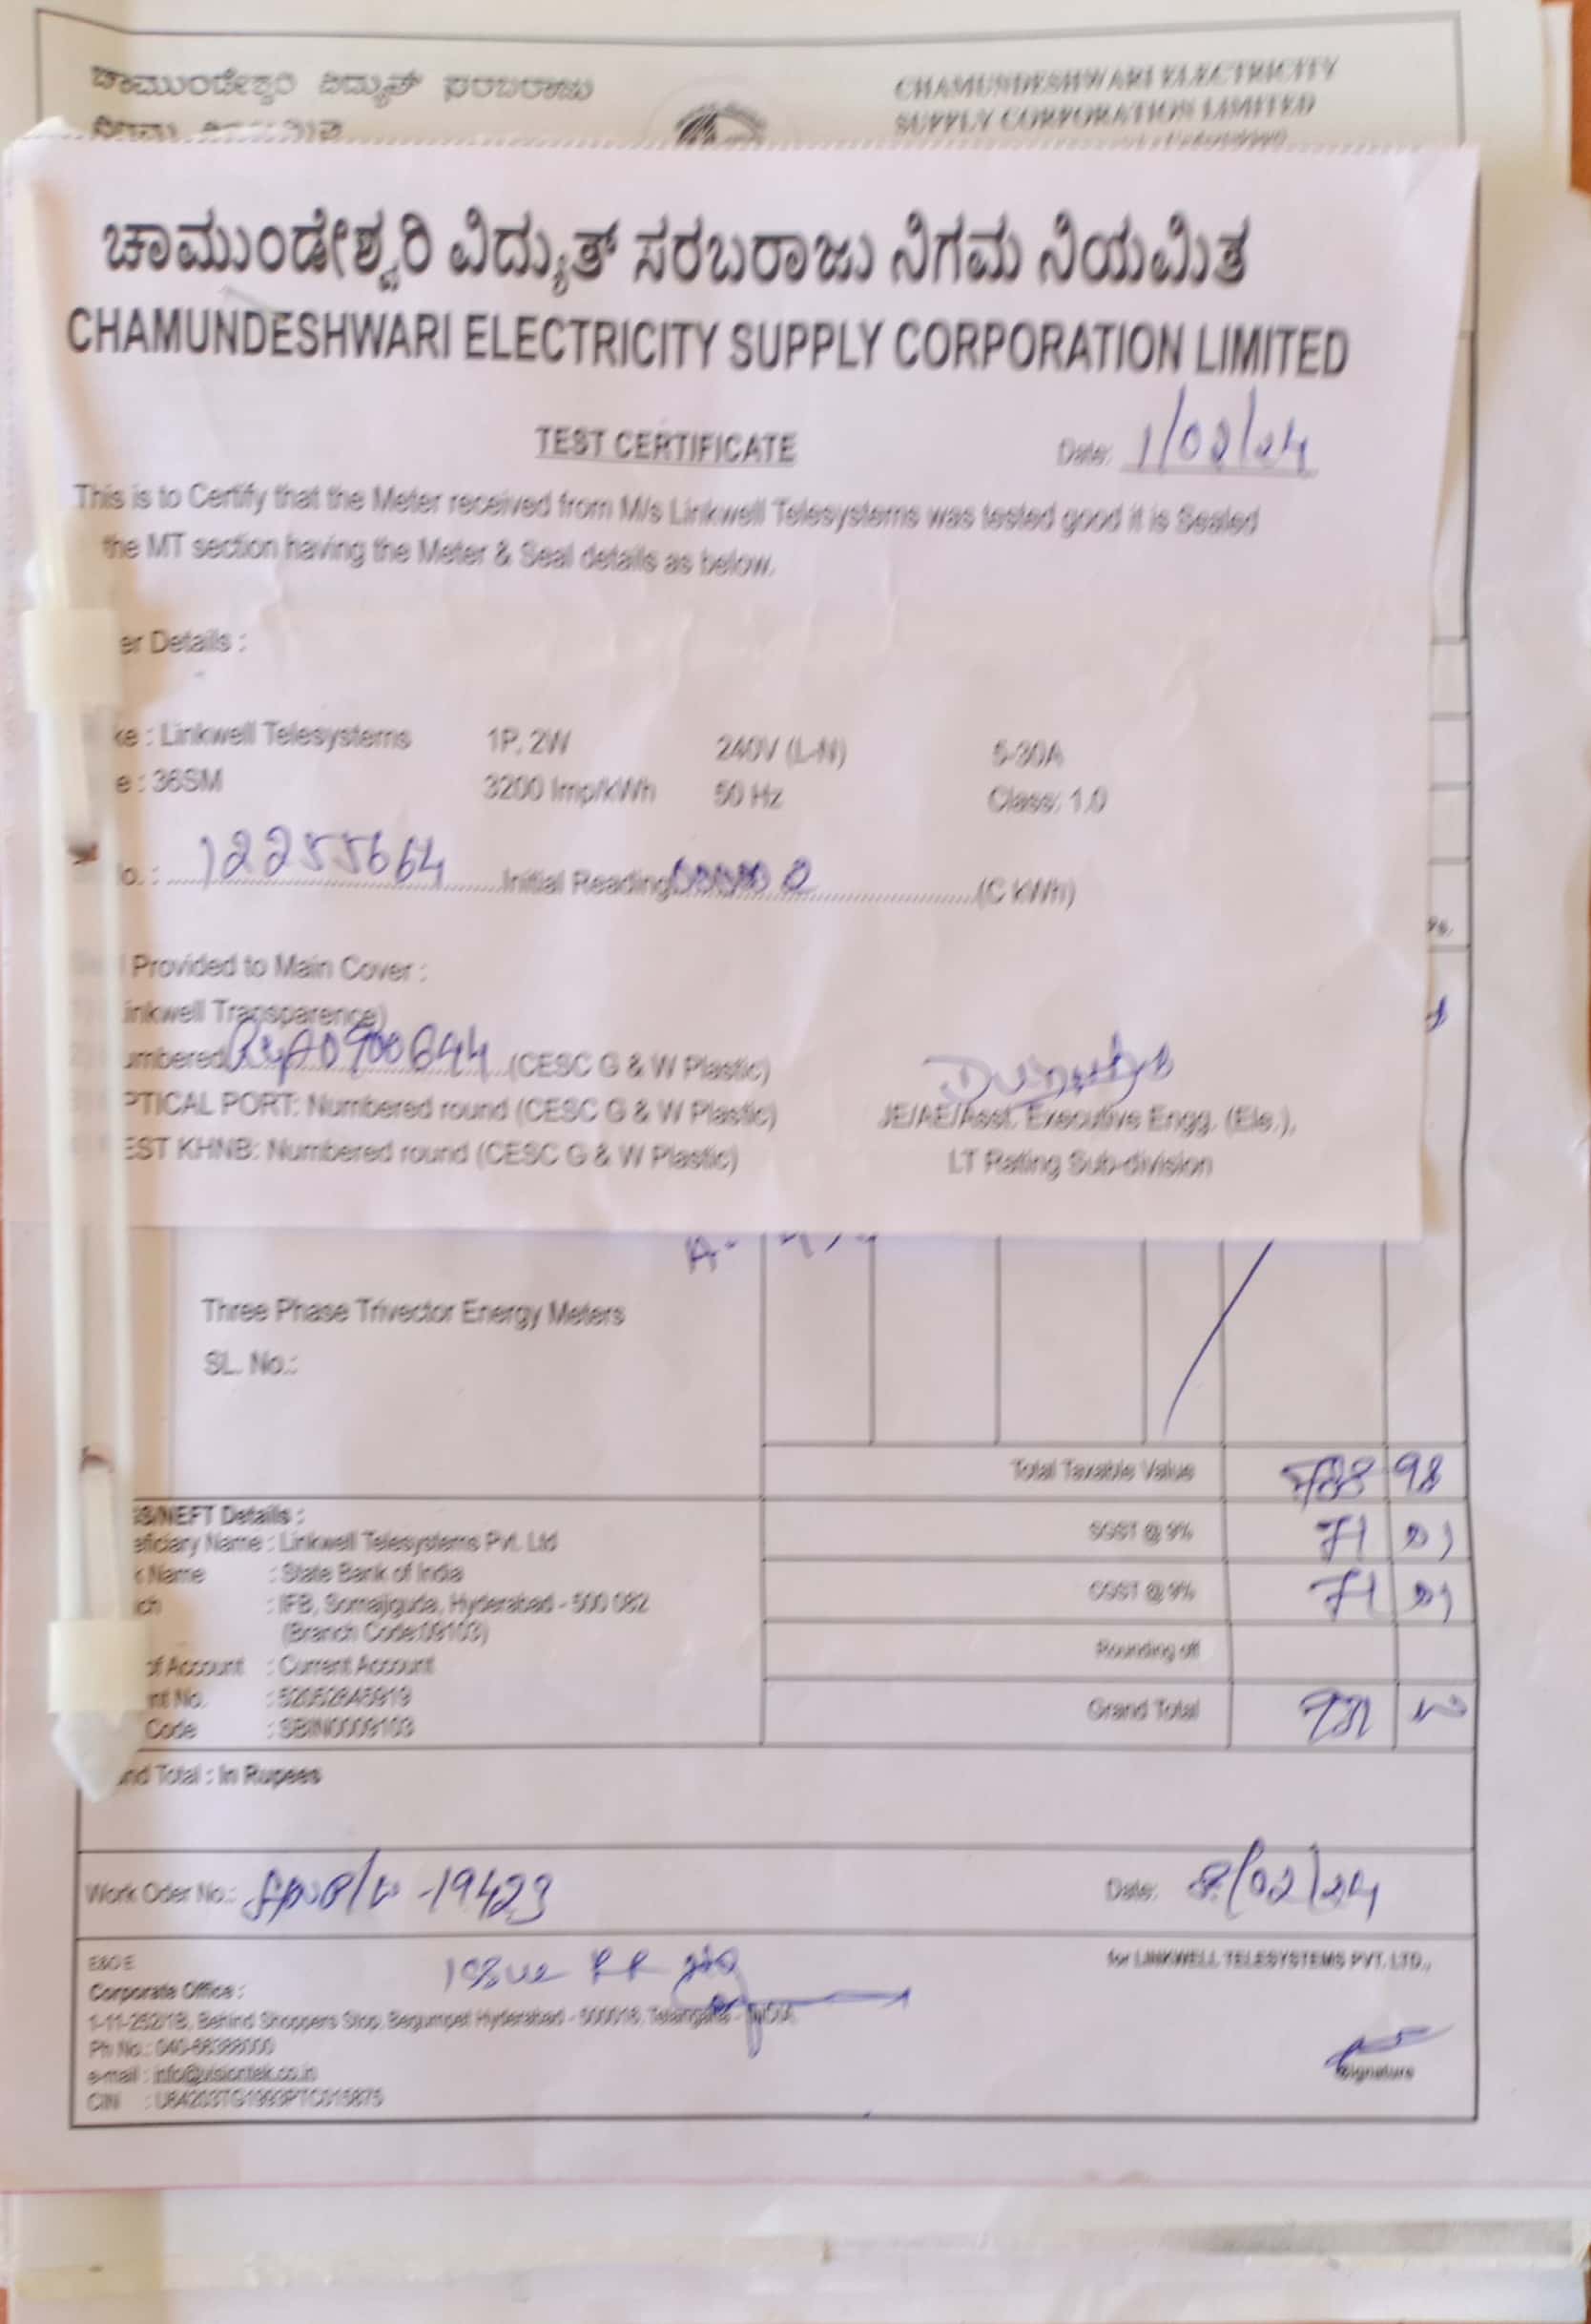 ಚಾಮುಂಡೇಶ್ವರಿ ವಿದ್ಯುತ್ ಸರಬರಾಜು
CHAMUNDESHWARI ELECTRICITY
SUPPLY CORPORATION LIMITED
ಚಾಮುಂಡೇಶ್ವರಿ ವಿದ್ಯುತ್ ಸರಬರಾಜು ನಿಗಮ ನಿಯಮಿತ
CHAMUNDESHWARI ELECTRICITY SUPPLY CORPORATION LIMITED
TEST CERTIFICATE Date: 1/02/24
This is to Certify that the Meter received from M/s Linkwell Telesystems was tested good it is Sealed
the MT section having the Meter & Seal details as below.
er Details :
ke : Linkwell Telesystems 1P, 2W 240V (L-N) 5-30A
e : 36SM 3200 Imp/kWh 50 Hz Class: 1.0
o. : 12255664 Initial Reading (C kWh)
Provided to Main Cover :
inkwell Transparence)
umbered (CESC G & W Plastic)
PTICAL PORT: Numbered round (CESC G & W Plastic) JE/AE/Asst. Executive Engg. (Ele.),
EST KHNB: Numbered round (CESC G & W Plastic) LT Rating Sub-division
Three Phase Trivector Energy Meters
SL. No.:
Total Taxable Value 788 98
SGST @ 9% 71
CGST @ 9% 71
Rounding off
Grand Total
S/NEFT Details :
eficiary Name : Linkwell Telesystems Pvt. Ltd
k Name : State Bank of India
ch : IFB, Somajiguda, Hyderabad - 500 082
(Branch Code:09103)
of Account : Current Account
nt No. : 52052845919
Code : SBIN0009103
nd Total : In Rupees
Work Oder No.: -19423 Date: 8/02/24
E&OE for LINKWELL TELESYSTEMS PVT. LTD.,
Corporate Office :
1-11-252/1B, Behind Shoppers Stop, Begumpet Hyderabad - 500016, Telangana - INDIA
Ph No.: 040-66388000
e-mail : info@visiontek.co.in
CIN : U64203TG1993PTC015875
Signature